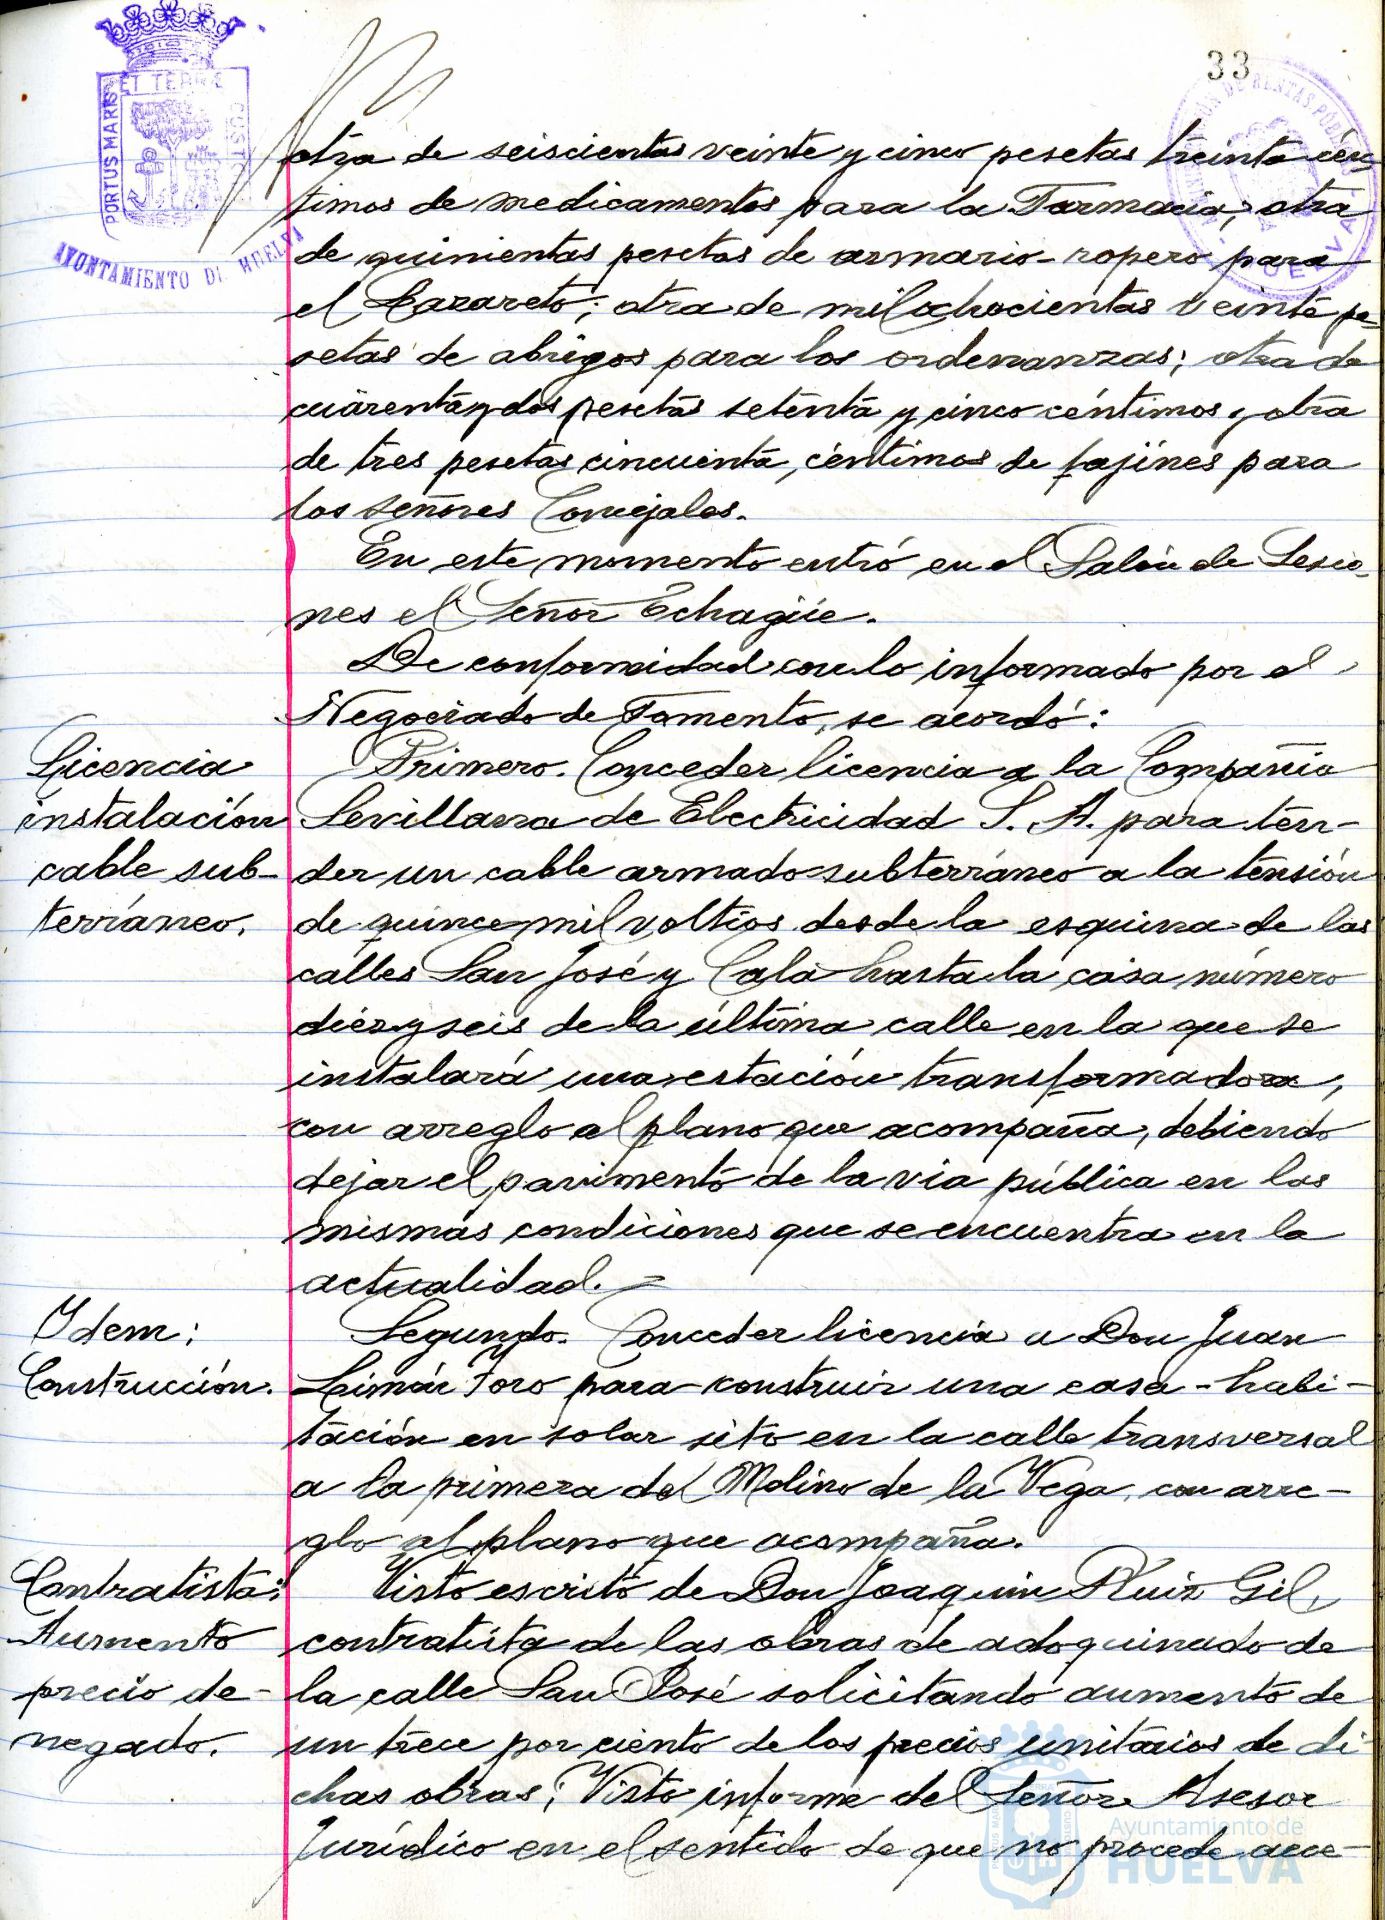 33
PORTUS MARIS ET TERRÆ CUSTODIA
AYUNTAMIENTO DE HUELVA
otra de seiscientas veinte y cinco pesetas treinta cén
timos de medicamentos para la Farmacia; otra
de quinientas pesetas de armario-ropero para
el Lazareto; otra de mil ochocientas veinte pe-
setas de abrigos para los ordenanzas; otra de
cuarenta y dos pesetas setenta y cinco céntimos y otra
de tres pesetas cincuenta céntimos de fajines para
los señores Concejales.
En este momento entró en el Salón de Sesio-
nes el Señor Echagüe.
De conformidad con lo informado por el
Negociado de Fomento, se acordó:
Licencia
instalación
cable sub-
terráneo.
Primero. Conceder licencia a la Compañia
Sevillana de Electricidad S. A. para ten-
der un cable armado subterráneo a la tensión
de quince mil voltios desde la esquina de las
calles San José y Cala hasta la casa número
diez y seis de la última calle en la que se
instalará una estación transformadora,
con arreglo al plano que acompaña, debiendo
dejar el pavimento de la via pública en las
mismas condiciones que se encuentra en la
actualidad.
Idem:
Construcción.
Segundo. Conceder licencia a Don Juan
Toro para construir una casa-habi-
tación en solar sito en la calle transversal
a la primera del Molino de la Vega, con arre-
glo al plano que acompaña.
Contratista:
Aumento
precio de-
negado.
Visto escrito de Don Joaquin Ruiz Gil,
contratista de las obras de adoquinado de
la calle San José solicitando aumento de
un trece por ciento de los precios unitarios de di
chas obras; Visto informe del Señor Asesor
Jurídico en el sentido de que no procede acce-
Ayuntamiento de
HUELVA